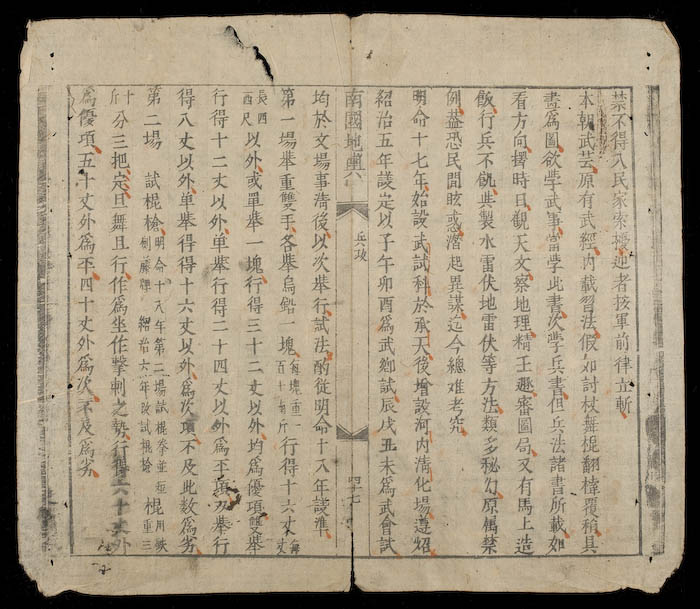 禁不得入民家索擾迎者按軍前律立斬
本朝武芸原有武經內載習法假如討杖舞棍翻樟覆稍具
畫爲圖欲學武事當學此書次學兵書但兵法諸書所載如
看方向擇時日觀天文察地理精王遯審圖局又有馬上造
飯行兵不飢與製水雷伏地雷伏等方法類多秘幻原屬禁
例盖恐民間眩惑潛起異謀迄今總難考究
明命十七年始設武試科於承天後增設河內清化場遵炤
紹治五年議定以子午卯酉爲武鄉試辰戌丑未爲武會試
南國地輿
兵政
四十七
均於文場事清後以次舉行試法酌從明命十八年議準
第一場舉重雙手各舉烏鉛一塊每塊重一百十斤行得十六丈每丈
長四西尺以外或單舉一塊行得三十二丈以外均爲優項雙舉
行得十二丈以外單舉行得二十四丈以外爲平項双舉行
得八丈以外單舉得得十六丈以外爲次項不及此數爲劣
第二場 試棍槍明命十八年第二場試棍拳並短用 刺藤牌 紹治六年改試棍槍棍重三
十斤分三把定旦舞且行作爲坐作擊刺之勢行得六十丈外
爲優項五十丈外爲平四十丈外爲次不及爲劣